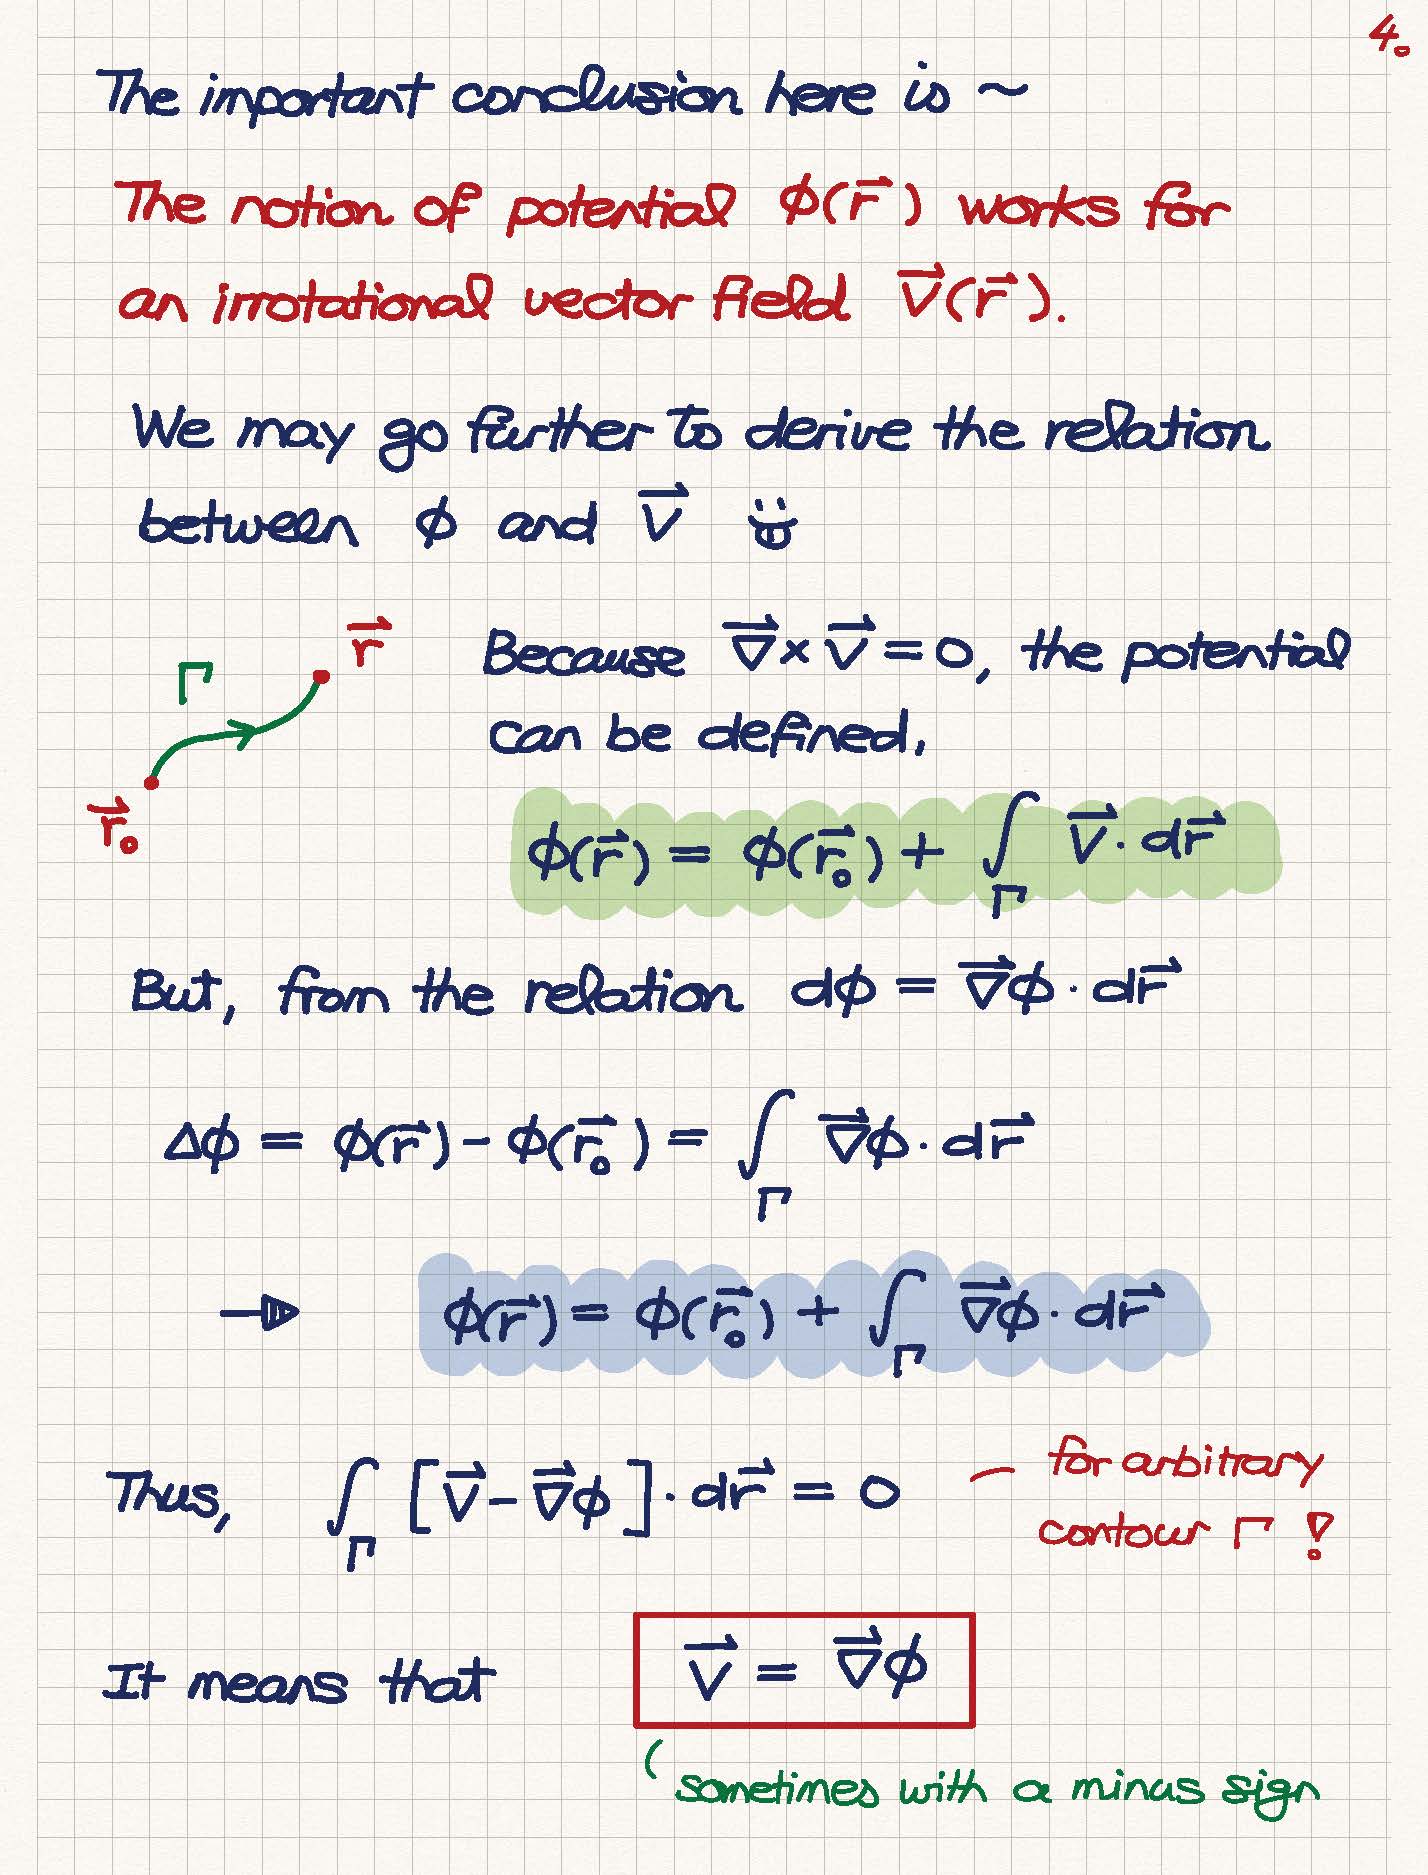 4.
The important conclusion here is ~
The notion of potential ϕ(r⃗) works for
an irrotational vector field V⃗(r⃗).
We may go further to derive the relation
between ϕ and V⃗
r⃗
Γ
r⃗₀
Because ∇⃗ × V⃗ = 0, the potential
can be defined,
ϕ(r⃗) = ϕ(r⃗₀) + ∫_Γ V⃗ · dr⃗
But, from the relation dϕ = ∇⃗ϕ · dr⃗
Δϕ = ϕ(r⃗) - ϕ(r⃗₀) = ∫_Γ ∇⃗ϕ · dr⃗
→ ϕ(r⃗) = ϕ(r⃗₀) + ∫_Γ ∇⃗ϕ · dr⃗
Thus, ∫_Γ [V⃗ - ∇⃗ϕ] · dr⃗ = 0
for arbitrary
contour Γ !
It means that V⃗ = ∇⃗ϕ
sometimes with a minus sign